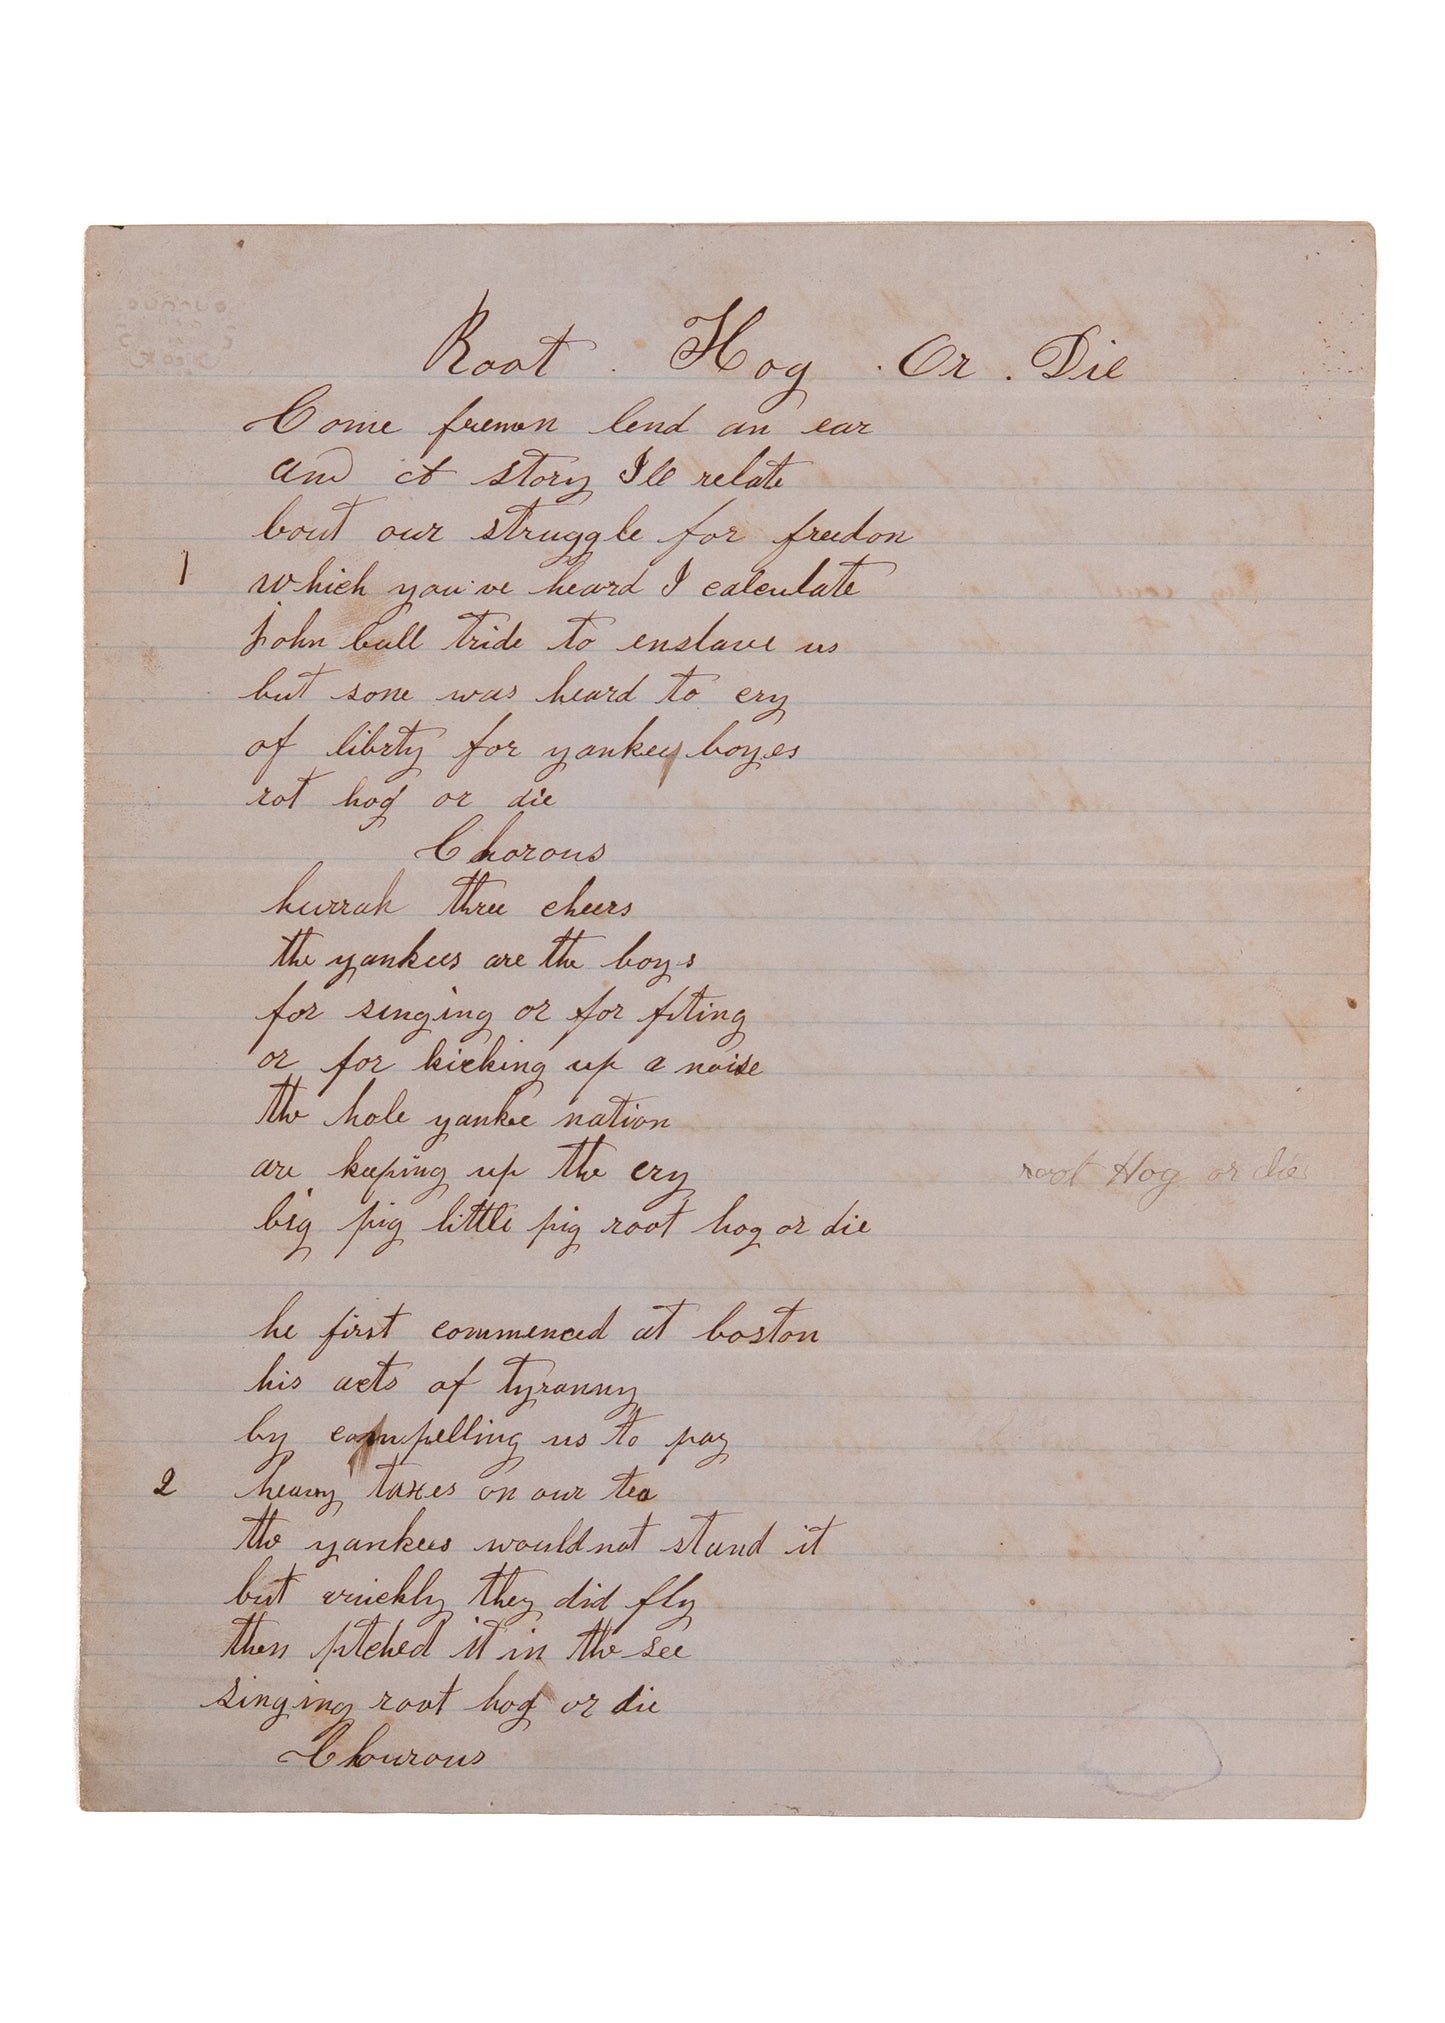 Root . Hog . Or . Die
Come fremen lend an ear
and a story I'll relate
bout our struggle for freedon
1 which you've heard I calculate
john bull tride to enslave us
but sone was heard to cry
of librty for yankey boyes
rot hog or die
Chorous
hurrah three cheers
the yankees are the boys
for singing or for fiting
or for kicking up a noise
the hole yankee nation
are keeping up the cry
root Hog or die
big pig little pig root hog or die
he first commenced at boston
his acts of tyranny
by compelling us to pay
2 heavy taxes on our tea
the yankees would not stand it
but quickly they did fly
then pitched it in the see
singing root hog or die
Chourous